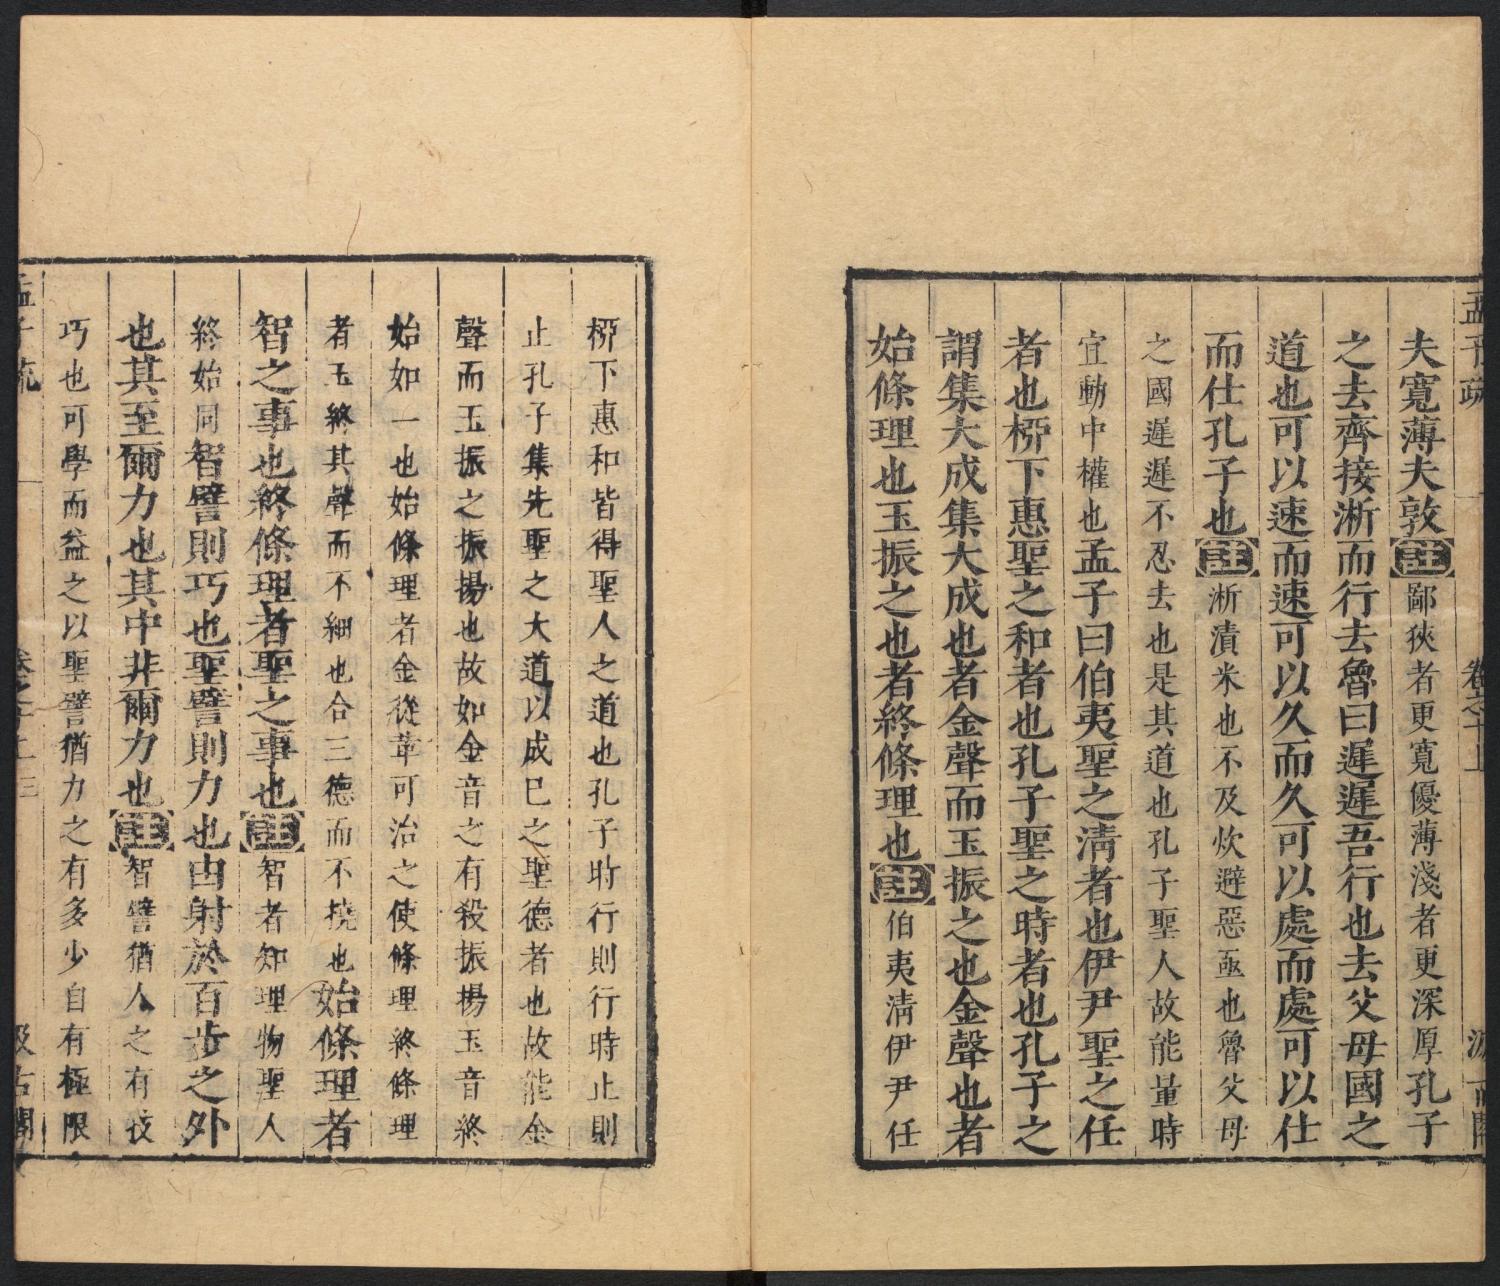 孟子疏 卷之十上
夫寬薄夫敦註鄙狹者更寬優薄淺者更深厚孔子
之去齊接淅而行去魯曰遲遲吾行也去父母國之
道也可以速而速可以久而久可以處而處可以仕
而仕孔子也註淅漬米也不及炊避惡亟也魯父母
之國遲遲不忍去也是其道也孔子聖人故能量時
宜動中權也孟子曰伯夷聖之淸者也伊尹聖之任
者也桺下惠聖之和者也孔子聖之時者也孔子之
謂集大成集大成也者金聲而玉振之也金聲也者
始條理也玉振之也者終條理也註伯夷淸伊尹任
桺下惠和皆得聖人之道也孔子時行則行時止則
止孔子集先聖之大道以成巳之聖德者也故能金
聲而玉振之振揚也故如金音之有殺振揚玉音終
始如一也始條理者金從革可治之使條理終條理
者玉終其聲而不細也合三德而不撓也始條理者
智之事也終條理者聖之事也註智者知理物聖人
終始同智譬則巧也聖譬則力也由射於百步之外
也其至爾力也其中非爾力也註智譬猶人之有技
巧也可學而益之以聖譬猶力之有多少自有極限
孟子疏 卷之十上 三 汲古閣